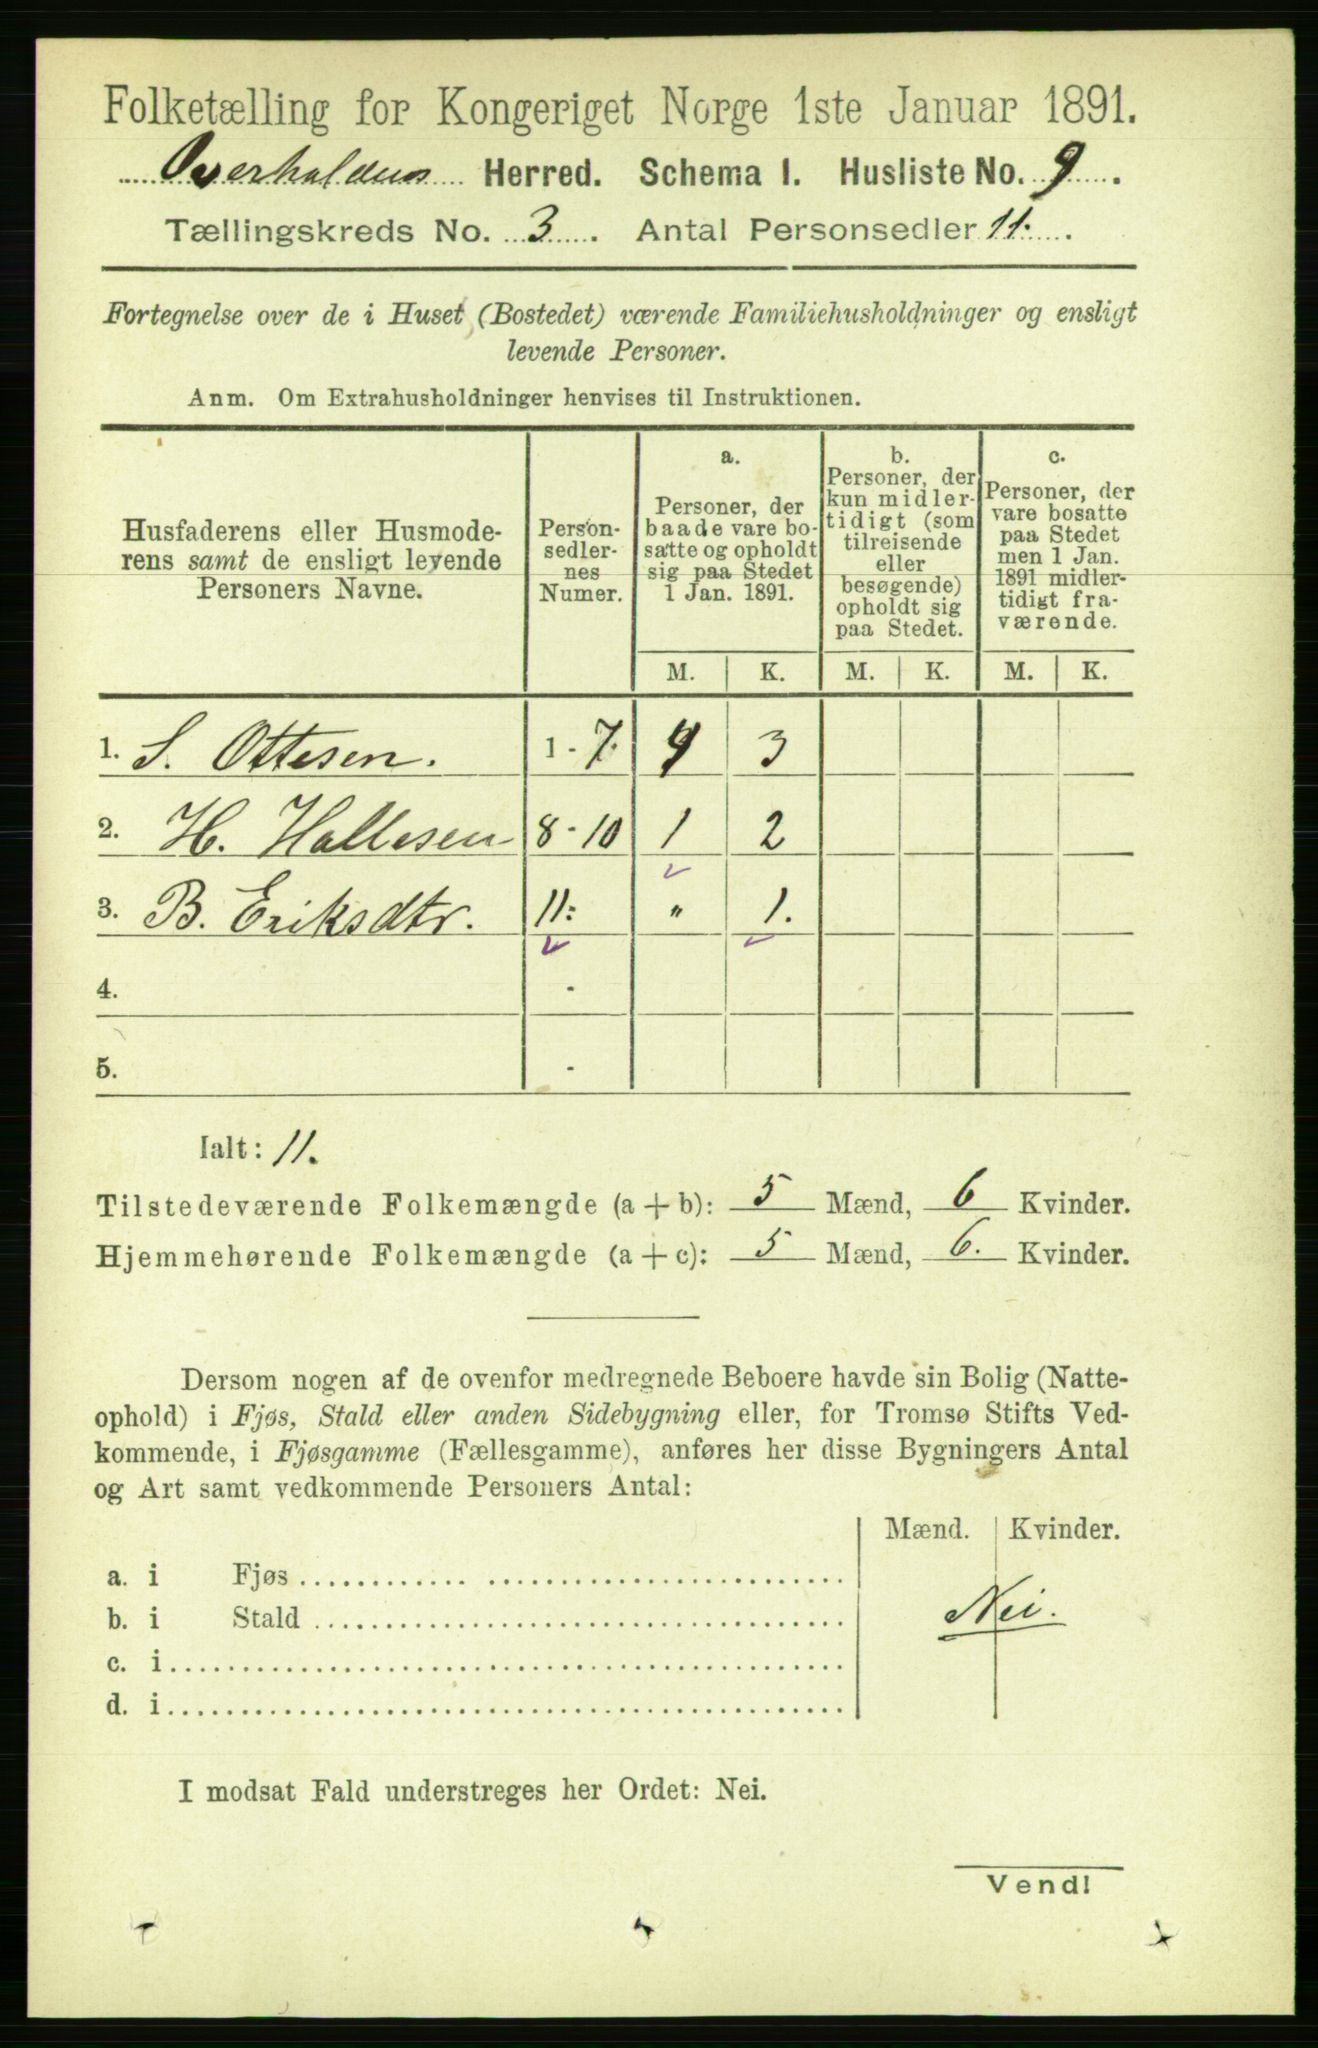 Folketælling for Kongeriget Norge 1ste Januar 1891.
Overhaldens Herred. Schema I. Husliste No. 9.
Tællingskreds No. 3. Antal Personsedler 11.
Fortegnelse over de i Huset (Bostedet) værende Familiehusholdninger og ensligt
levende Personer.
Anm. Om Extrahusholdninger henvises til Instruktionen.
Husfaderens eller Husmode-
rens samt de ensligt levende
Personers Navne.
Person-
sedler-
nes
Numer.
a.
Personer, der
baade vare bo-
satte og opholdt
sig paa Stedet
1 Jan. 1891.
b.
Personer, der
kun midler-
tidigt (som
tilreisende
eller
besøgende)
opholdt sig
paa Stedet.
c.
Personer, der
vare bosatte
paa Stedet
men 1 Jan.
1891 midler-
tidigt fra-
værende.
M. K. M. K. M. K.
1. S. Ottesen. 1 - 7. 4 3
2. H. Hallesen 8 - 10 1 2
3. B. Eriksdtr. 11: " 1.
4. -
5. -
Ialt: 11.
Tilstedeværende Folkemængde (a + b): 5 Mænd, 6 Kvinder.
Hjemmehørende Folkemængde (a + c): 5 Mænd, 6. Kvinder.
Dersom nogen af de ovenfor medregnede Beboere havde sin Bolig (Natte-
ophold) i Fjøs, Stald eller anden Sidebygning eller, for Tromsø Stifts Ved-
kommende, i Fjøsgamme (Fællesgamme), anføres her disse Bygningers Antal
og Art samt vedkommende Personers Antal:
Mænd. Kvinder.
a. i Fjøs
b. i Stald
Nei.
c. i
d. i
I modsat Fald understreges her Ordet: Nei.
Vend!